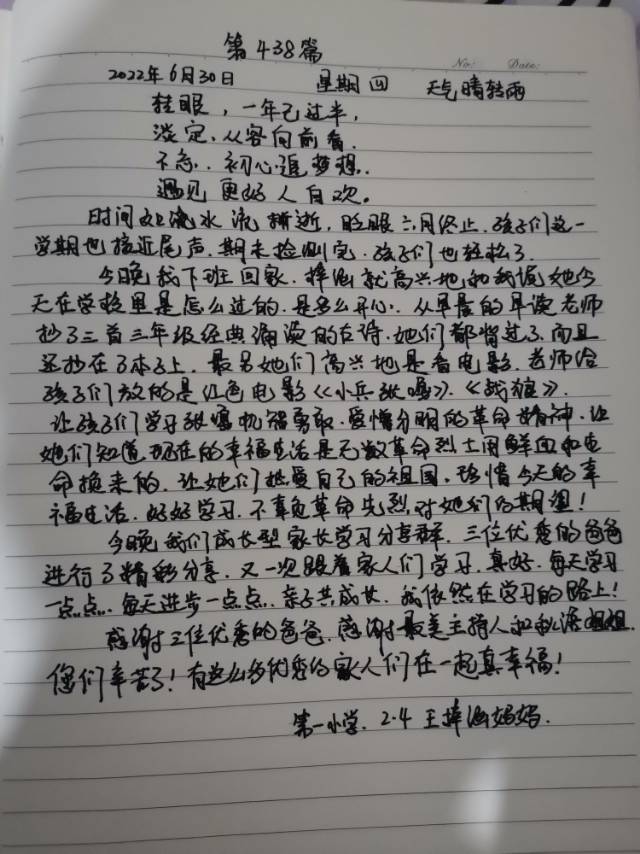 第438篇
No: Date:
2022年6月30日 星期四 天气晴转雨
眨眼，一年已过半，
淡定，从容向前看，
不忘，初心追梦想，
遇见更好人自欢。
时间如流水流逝，眨眼六月终止，孩子们这一
学期也接近尾声，期末检测完，孩子们也轻松了。
今晚我下班回家，梓涵就高兴地和我说她今
天在学校里是怎么过的，是多么开心，从早晨的早读老师
抄了三首三年级经典诵读的古诗，她们都背过了，而且
还抄在了本子上，最另她们高兴地是看电影，老师给
孩子们放的是红色电影《小兵张嘎》、《战狼》，
让孩子们学习张嘎机智勇敢，爱憎分明的革命精神，让
她们知道现在的幸福生活是无数革命烈士用鲜血和生
命换来的，让她们热爱自己的祖国，珍惜今天的幸
福生活，好好学习，不辜负革命先烈对她们的期望！
今晚我们成长型家长学习分享群，三位优秀的爸爸
进行了精彩分享，又一次跟着家人们学习，真好，每天学习
一点点，每天进步一点点，亲子共成长，我依然在学习的路上！
感谢三位优秀的爸爸，感谢最美主持人和姐姐，
您们辛苦了！有这么多优秀的家人们在一起真幸福！
第一小学，2.4 王梓涵妈妈．